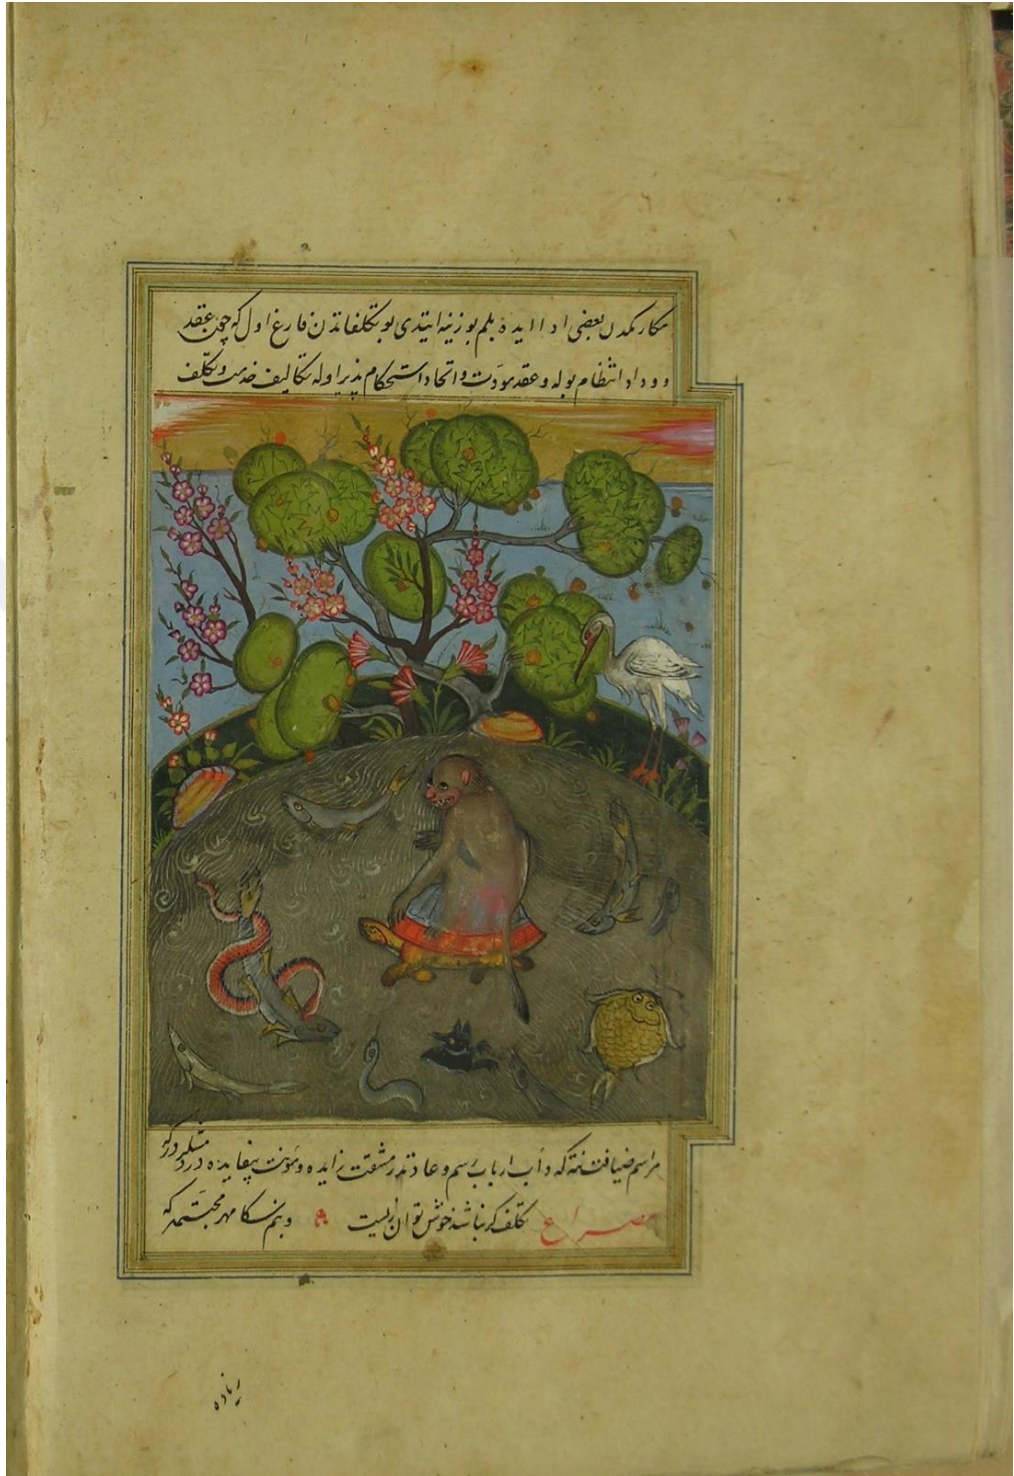 مكارمكدن بعضی ادا ایده بلم بوزینه ایتدی بو تكلفاتدن فارغ اول كه چون عقد
و وداد انتظام بوله و عقد مودت و اتحاد استحكام پذیر اوله تكالیف خدمت و تكلف
مراسم ضیافت نته كه دأب ارباب رسم و عادتدر مشقت زایده و مؤنت بیفایده در
مصراع تكلف گر نباشد خوش توان زیست و بنم سكا مهر محبتم